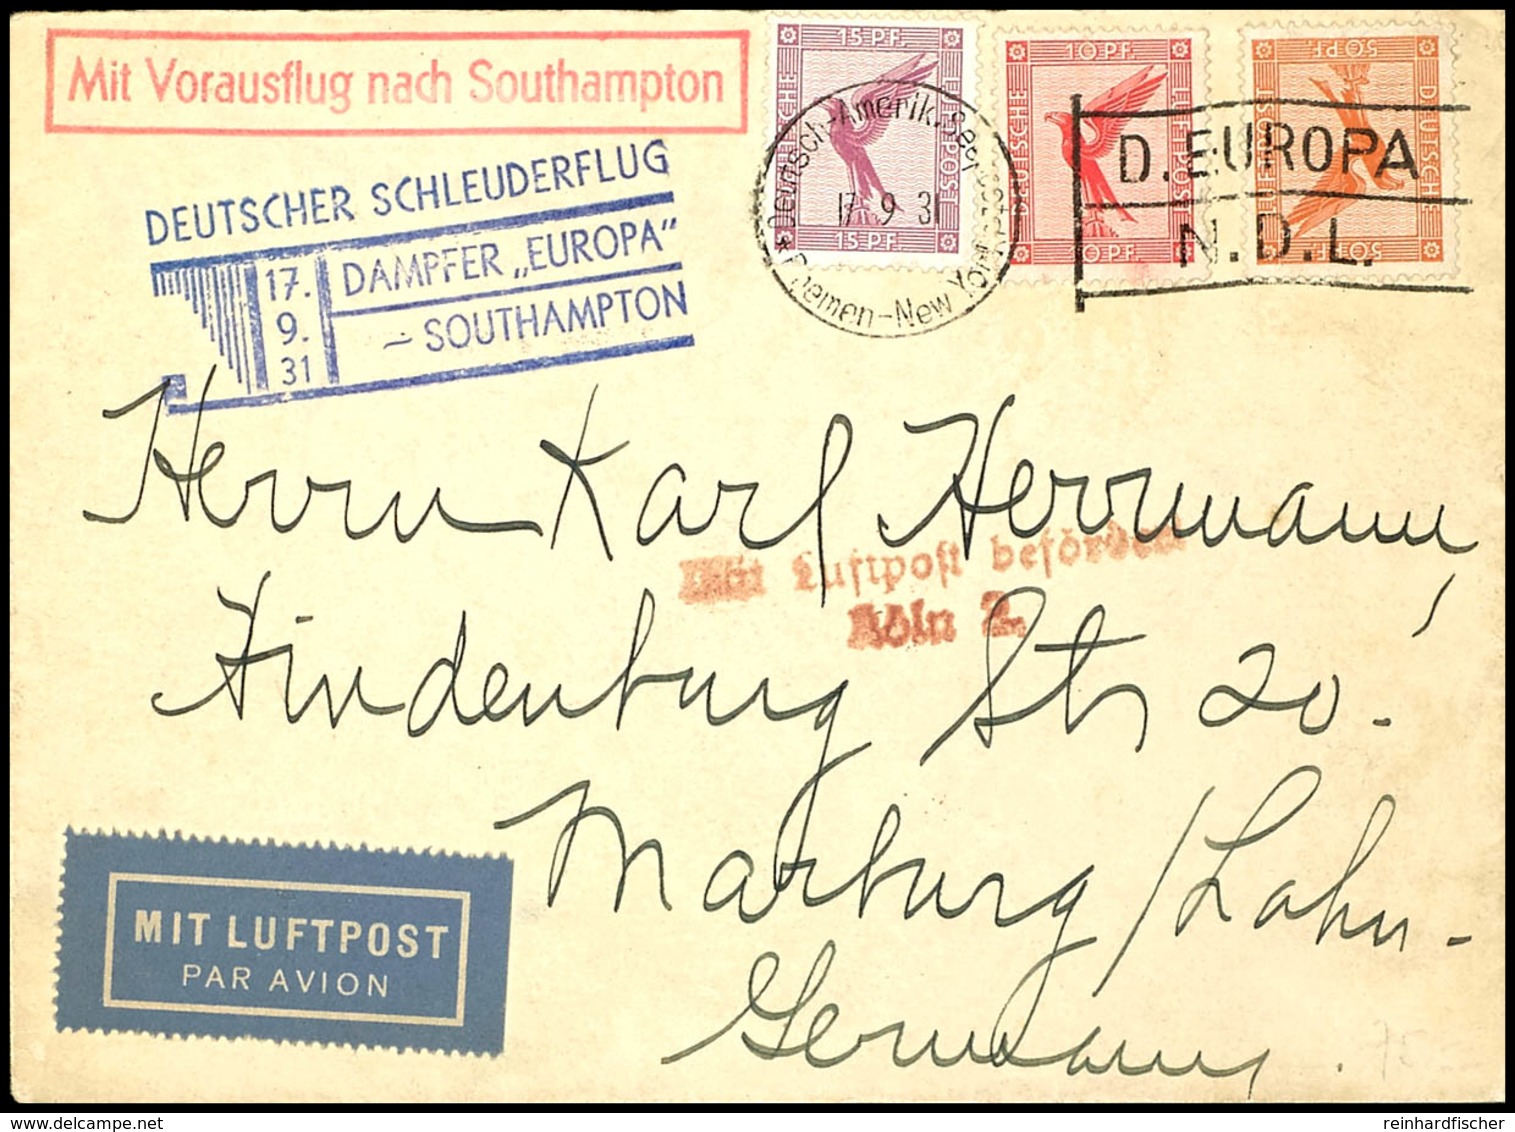 Mit Vorausflug nach Southampton
DEUTSCHER SCHLEUDERFLUG
17.
9.
31
DAMPFER „EUROPA“
— SOUTHAMPTON
15 PF.
DEUTSCHE
LUFTPOST
15 PF.
10 PF.
DEUTSCHE
LUFTPOST
10 PF.
50 PF.
DEUTSCHE
LUFTPOST
50 PF.
Deutsch-Amerik. Seepost
17 9 31
* Bremen-New York
D. EUROPA
N.D.L.
Herrn Karl Herrmann
Mit Luftpost befördert
Köln 2.
Hindenburg Str 20.
Marburg / Lahn -
Germany.
MIT LUFTPOST
PAR AVION
75
reinhardfischer